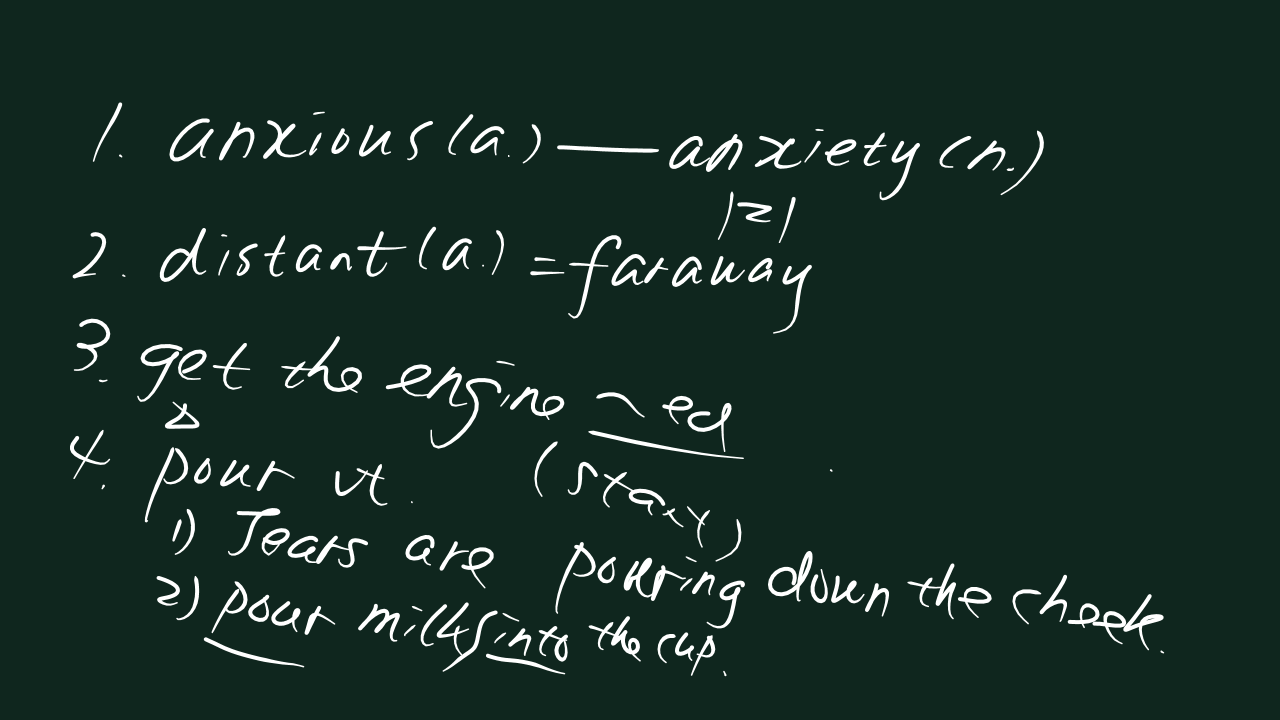 1. anxious (a.) — anxiety (n.)
|z|
2. distant (a.) = faraway
3. get the engine ~ed
(start)
4. pour vt.
1) Tears are pouring down the cheek.
2) pour milk into the cup.